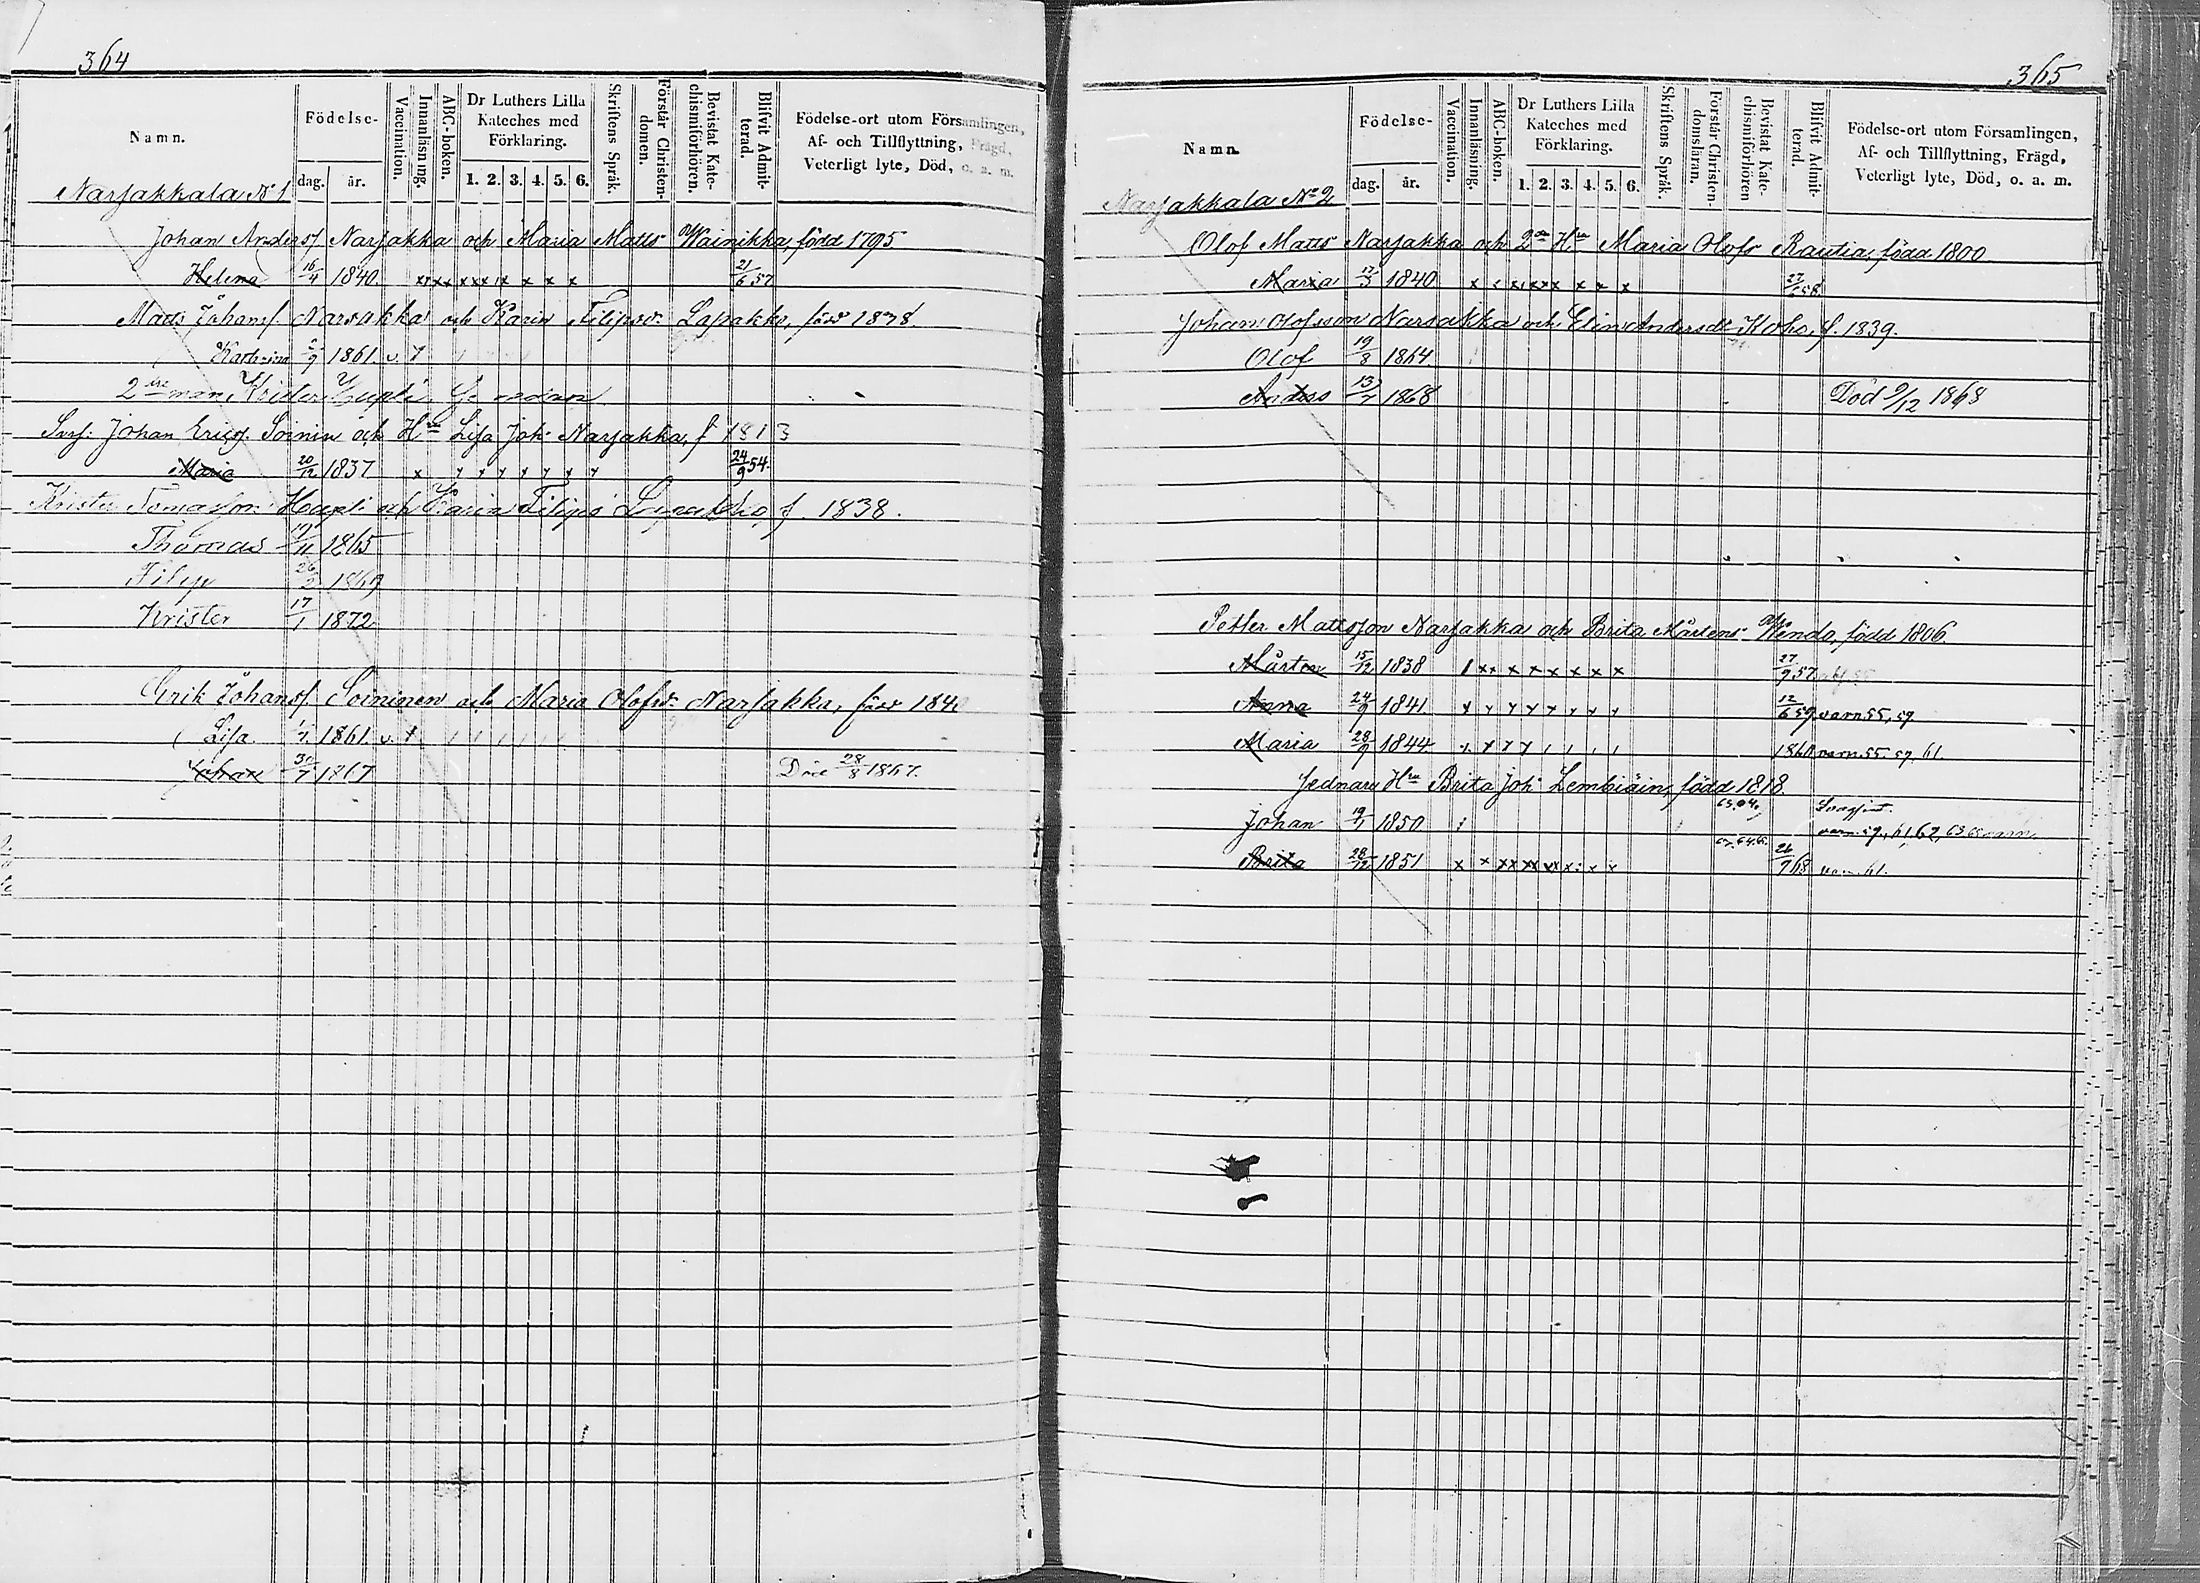 364
Namn.
Födelse-
dag. år.
Vaccination.
Innanläsning.
ABC-boken.
Dr Luthers Lilla Kateches med Förklaring.
1. 2. 3. 4. 5. 6.
Skriftens Språk.
Förstår Christen-domen.
Bevistat Kate-chismiförhören.
Blifvit Admit-terad.
Födelse-ort utom Församlingen, Af- och Tillflyttning, Frägd, Veterligt lyte, Död, o. a. m.
Narjakkala No 1
Johan Andersf. Narjakka och Maria Matts Wainikka, född 1795
Helena 16/4 1840. 21/6 57
Matts Johansf. Narjakka och Karin Filipsd. Lapakko, född 1838.
Katarina 1861. v.
2dre man Krister Hupli Se nedan
Johan Ericsf. Soinin och Hu Lisa Joh. Narjakka, f 1813
Maria 20/12 1837 24/9 54.
Krister Tomasson Hupli och Karin Filips Lapakko, f. 1838.
Thomas 1865
Filip 1869
Krister 17/1 1872
Erik Johansf. Soininen och Maria Olofsd. Narjakka, född 184
Lisa 1861. v.
Johan 30/7 1867 Död 28/8 1867.
365
Namn.
Födelse-
dag. år.
Vaccination.
Innanläsning.
ABC-boken.
Dr Luthers Lilla Kateches med Förklaring.
1. 2. 3. 4. 5. 6.
Skriftens Språk.
Förstår Christen-domsläran.
Bevistat Kate-chismiförhören
Blifvit Admit-terad.
Födelse-ort utom Församlingen, Af- och Tillflyttning, Frägd, Veterligt lyte, Död, o. a. m.
Narjakkala No 2
Olof Matts Narjakka och 2dra Hu Maria Olofs Rautia, född 1800
Maria 1840 58
Johan Olofsson Narjakka och Elin Andersdr Koho, f. 1839.
Olof 19/8 1864.
Anders 13/7 1868 Död 9/12 1868
Petter Mattsson Narjakka och Brita Mårtens Wendo, född 1806
Mårten 15/12 1838 27/9 57
Anna 24/9 1841 12/6 59 varn 55, 59
Maria 28/9 1844 1861 varn. 55. 59. 61.
Sednare Hu Brita Joh. Lembiäin, född 1818.
Johan 19/1 1850 varn. 59, 61, 62,
Brita 28/12 1851 26/7 68 varn. 61.